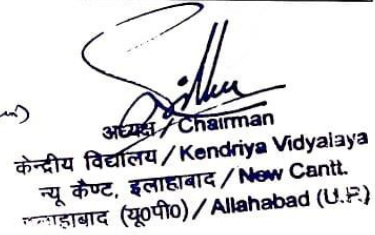 अध्यक्ष / Chairman
केन्द्रीय विद्यालय / Kendriya Vidyalaya
न्यू कैण्ट, इलाहाबाद / New Cantt.
इलाहाबाद (यू०पी०) / Allahabad (U.P.)